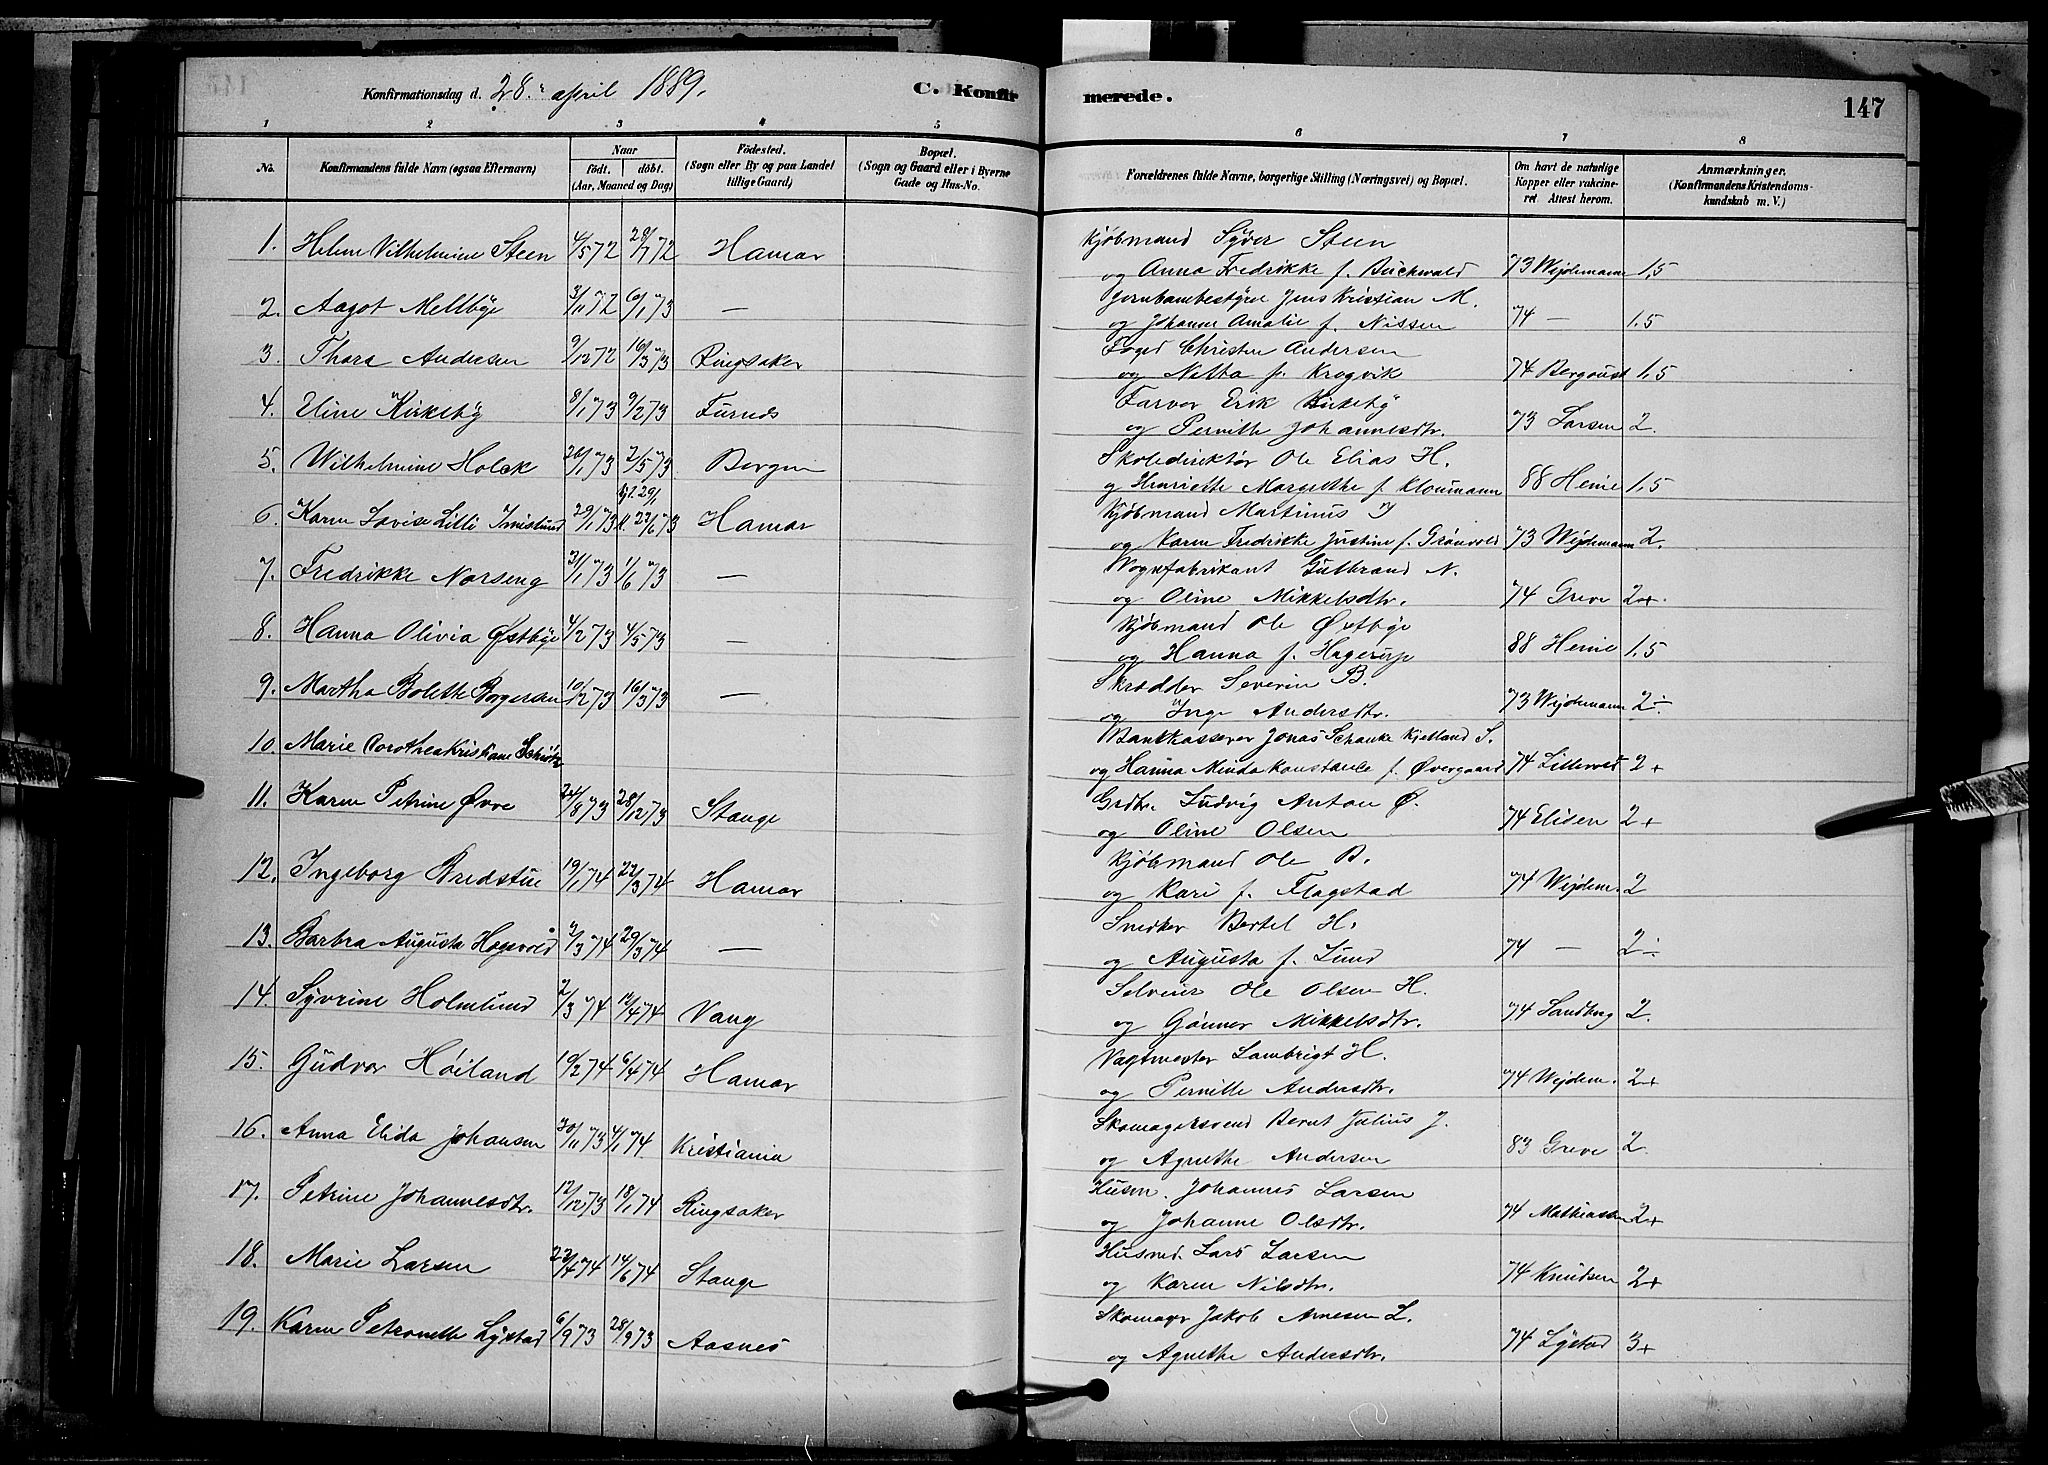 Konfirmationsdag d. 28. april 1889.
C. Konfirmerede.
147
1 2 3 4 5 6 7 8
No. Konfirmandens fulde Navn (ogsaa Efternavn) Naar født. døbt. (Aar, Maaned og Dag) Fødested. (Sogn eller By og paa Landet tillige Gaard) Bopæl. (Sogn og Gaard eller i Byerne Gade og Hus-No. Forældrenes fulde Navne, borgerlige Stilling (Næringsvei) og Bopæl. Om havt de naturlige Kopper eller vakcineret Attest herom. Anmærkninger. (Konfirmandens Kristendomskundskab m. V.)
1. Helene Vilhelmine Steen 4/5 72 28/7 72 Hamar Kjøbmand Syver Steen
og Anna Fredrikke f. Buchwald 73 Wijdemann 1,5
2. Aagot Mellbye 3/11 72 6/1 73 — Jernbanebestyrer Jens Kristian M.
og Johanne Amalie f. Nissen 74 — 1.5
3. Thora Andersen 9/12 72 16/3 73 Ringsaker Foged Christen Andersen
og Netta f. Krogvik 74 Bergaust 1,5
4. Eline Kirkeby 8/1 73 9/2 73 Furnes Farver Erik Kirkeby
og Pernille Johannesdtr. 73 Larsen 2.
5. Wilhelmine Holck 20/1 73 2/5 73 Bergen Skoledirektør Ole Elias H.
og Henriette Margrethe f. Kloumann 88 Heine 1,5
6. Karen Lovise Lilli Imislund 29/1 73 hj. 29/1 k. 22/6 73 Hamar Kjøbmand Martinus I
og Karen Fredrikke Justine f. Grønvold 73 Wijdemann 2.
7. Fredrikke Norseng 31/1 73 1/6 73 — Vognfabrikant Gulbrand N.
og Oline Mikkelsdtr. 74 Greve 2+.
8. Hanna Olivia Østbye 4/2 73 4/5 73 — Kjøbmand Ole Østbye
og Hanna f. Hagerup 88 Heine 1.5
9. Martha Bolette Borgersen 10/2 73 16/3 73 — Skrædder Severin B.
og Inge Andersdtr. 73 Wijdemann 2÷.
10. Marie Dorothea Kristiane Schiøtz Bankkasserer Jonas Schanke Kjelland S.
og Hanna Minda Konstance f. Øvergaard 74 Lillevold 2+
11. Karen Petrine Øvre 24/8 73 28/12 73 Stange Grdbr. Ludvig Anton Ø.
og Oline Olsen 74 Elisen 2+
12. Ingeborg Bredstue 19/1 74 22/3 74 Hamar Kjøbmand Ole B.
og Kari f. Flagstad 74 Wijdem. 2
13. Barbra Augusta Hagevold 2/3 74 29/3 74 — Snedker Bertel H.
og Augusta f. Lund 74 — 2÷
14. Syverine Holmlund 2/3 74 12/4 74 Vang Selveier Ole Olsen H.
og Gønner Mikkelsdtr. 74 Sandberg 2.
15. Gudvor Høiland 19/2 74 6/4 74 Hamar Vagtmester Lambrigt H.
og Pernille Andersdtr. 74 Wijdem. 2+
16. Anna Elida Johansen 30/11 73 4/1 74 Kristiania Skomagersvend Bernt Julius J.
og Agnethe Andersen 83 Greve 2
17. Petrine Johannesdtr. 12/12 73 18/1 74 Ringsaker Husm. Johannes Larsen
og Johanne Olsdtr. 74 Mathiassen 2+
18. Marie Larsen 22/4 74 14/6 74 Stange Husmd. Lars Larsen
og Karen Nilsdtr. 74 Knudsen 2+
19. Karen Petronelle Lystad 6/9 73 28/9 73 Aasnes Skomager Jakob Arnesen L.
og Agnethe Andersdtr. 74 Lystad 3+